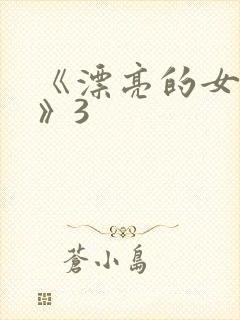 《漂亮的女
》3
蒼小島